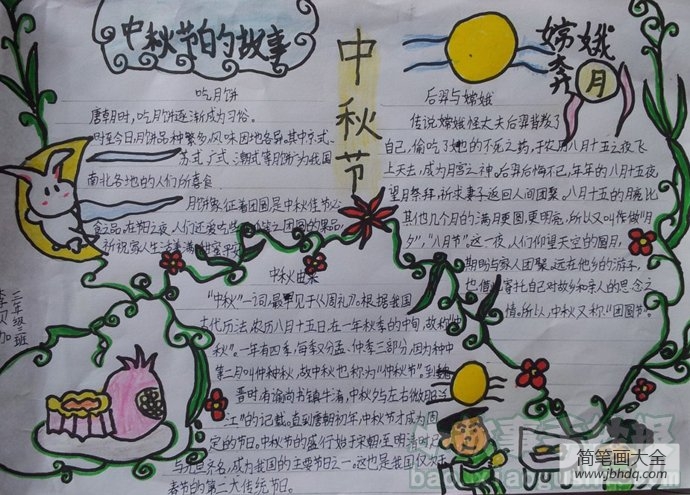 中秋节的故事
中秋节
嫦娥奔月
吃月饼
唐朝时,吃月饼逐渐成为习俗。
时至今日,月饼品种繁多,风味因地各异。其中京式、
苏式、广式、潮式等月饼为我国
南北各地的人们所喜食
月饼象征着团圆是中秋佳节必
食之品。在节日之夜,人们还爱吃些
团圆的果品,
祈祝家人生活美满甜蜜平安
后羿与嫦娥
传说嫦娥怪丈夫后羿背叛了
自己,偷吃了她的不死之药,于农历八月十五之夜飞
上天去,成为月宫之神。后羿后悔不已,年年的八月十五夜
望月祭拜,祈求妻子返回人间团聚。八月十五的月亮比
其他几个月的满月更圆,更明亮,所以又叫作做"月
夕","八月节"。这一夜,人们仰望天空的圆月,
期盼与家人团聚。远在他乡的游子,
也借此寄托自己对故乡和亲人的思念之
情。所以,中秋又称"团圆节"。
中秋由来
"中秋"一词,最早见于《周礼》。根据我国
古代历法,农历八月十五日,在一年秋季的中旬,故称"中
秋"。一年有四季,每季又分孟、仲、季三部分,因为秋中
第二月叫仲秋,故中秋也称为"仲秋节"。到魏
晋时,有谕尚书镇牛渚,中秋夕与左右微服泛
江"的记载。直到唐朝初年,中秋节才成为固
定的节日。中秋节的盛行始于宋朝,至明清时,已
与元旦齐名,成为我国的主要节日之一。这也是我国仅次于
春节的第二大传统节日。
三年级三班
简笔画大全
www.jbhdq.com